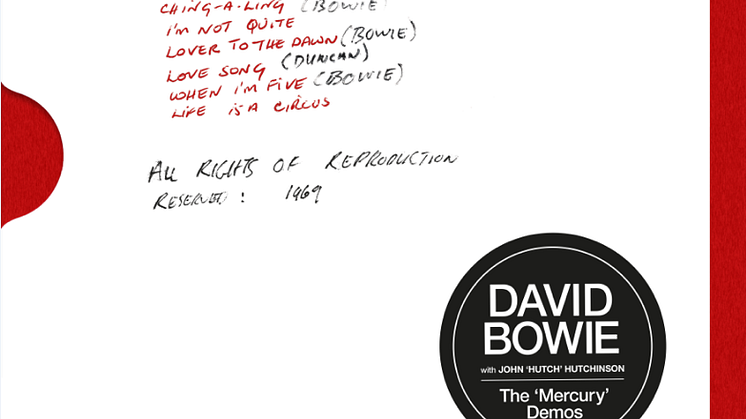 CHING-A-LING (BOWIE)
I'M NOT QUITE
LOVER TO THE DAWN (BOWIE)
LOVE SONG (DUNCAN)
WHEN I'M FIVE (BOWIE)
LIFE IS A CIRCUS
ALL RIGHTS OF REPRODUCTION
RESERVED: 1969
DAVID
BOWIE
with JOHN 'HUTCH' HUTCHINSON
The 'Mercury'
Demos